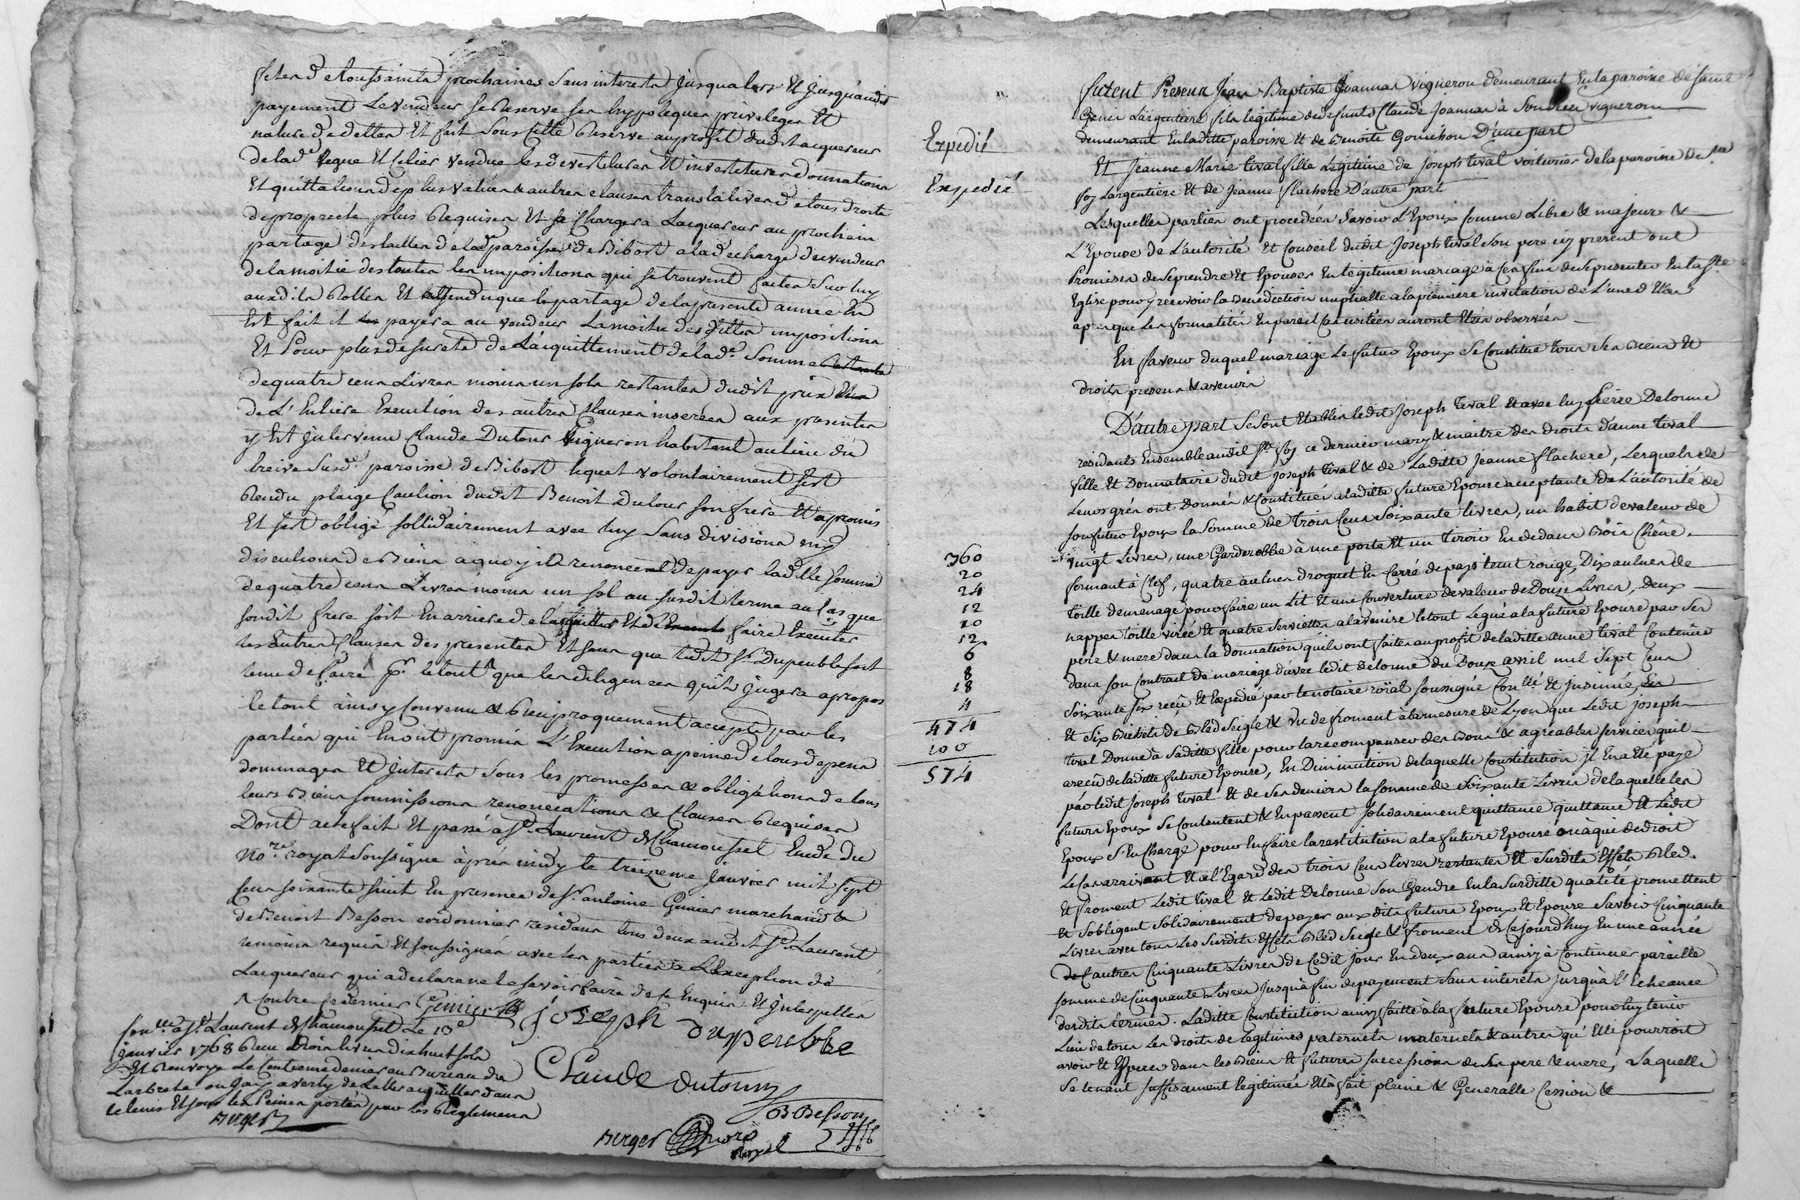 festes de toussaints prochaines sans interests jusqualors Et jusquaudit
payement Le vendeur se Reserve ses hyppoteques privileges Et
nature de dettes Et fait sous cette Reserve au profit dudit acquereur
de lade vigne Et celier vendue les devestitures Et investitures donnations
Et quittations des plus values & autres clauses translatives de tous droits
de proprieté plus Requises Et se Chargera Lacquereur au prochain
partage des tailles de lad paroisse de Bibost a la decharge du vendeur
de la moitié de toutes les impositions qui se trouvent faites sur luy
auxdits Rolles Et attendu que le partage de la presente année En
Est fait il payera au vendeur La moitié desdittes impositions
Et Pour plus de sureté de L'acquittement de lade somme
de quatre cens Livres moins un sols restantes dudit prix
de L'Entiere Execution des autres Clauses inserées aux presentes
y Est intervenu Claude Dutour vigneron habitant au lieu du
susde paroisse de Bibost lequel volontairement s'est
Rendu pleige Caution dudit Benoit Dutour son frere Et a promis
Et s'est obligé sollidairement avec luy sans divisions ny
discutions de Biens a quoy il a renoncé de payer laditte somme
de quatre cens Livres moins un sol au susdit terme au Cas que
sondit frere soit En arriere de l'acquitter Et de faire Executer
les autres Clauses des presentes Et sans que ledit Sr Dupeuble soit
tenu de faire pr le tout que les diligences qu'il jugera apropos
le tout ainsy Convenu & Reciproquement accepté par les
parties qui En ont promis L'Execution a peine de tous depens
dommages Et Interests sous les promesses & obligations de tous
leurs Biens soumissions renonciations & Clauses Requises
Dont acte fait Et passé a St Laurent de Chamousset Etude du
Nore royal soussigné après midy le treizieme Janvier mil sept
cens soixante huit En presence de Sr antoine Genier marchand &
de Benoit Besson cordonnier residans tous deux audit St Laurent
temoins requis Et soussignés avec les parties a L'exception de
Lacquereur qui a declaré ne le savoir faire de ce Enquis Et Interpellés
Joseph dupeuble
Claude dutour
B Besson
Berger Nore Royal
Conlle a St Laurent de Chamousset Le 13e
janvier 1768 Reçu Trois livres dix huit sols
Et Renvoyé Le Centieme denier au Bureau de
Larbresle
les peines portées par les Reglemens
Berger
Expedié
Expedié
360
20
24
12
10
12
6
8
18
4
474
100
574
furent Presens Jean Baptiste Joannas vigneron demeurant En la paroisse de Saint
Genis Largentiere fils legitime de defunts Claude Joannas a Son vigneron
demeurant En laditte paroisse Et de Benoite Gonichon D'une part
Et Jeanne Marie Tival fille Legitime de Joseph Tival voiturier de la paroisse de Ste
foy Largentiere Et de Jeanne flachere D'autre part
Lesquelles parties ont procedées savoir L'Epoux Comme Libre & majeur &
L'Epouse de L'autorité Et Conseil dudit Joseph Tival son pere icy present ont
Promises de se prendre Et Epouser En legitime mariage à ces fins de se presenter En la Ste
Eglise pour y recevoir la Benediction nuptialle a la premiere invitation de L'une d'Elles
apres que les formalités En pareil Cas usitées auront Etés observées
En faveur duquel mariage Le futur Epoux se Constitue tous ses Biens Et
droits presens & avenir
D'autre part se sont Etablis ledit Joseph Tival Et avec luy Pierre Delorme
residants Ensemble audit Ste foy ce dernier mary & maitre des droits d'anne Tival
fille Et Donnataire dudit Joseph Tival & de Laditte Jeanne flachere, Lesquels de
Leurs grés ont Donnés & Constitués a laditte future Epouse acceptante de L'autorité de
son futur Epoux la somme de Trois Cens Soixante livres, un habit de valeur de
vingt Livres, une Garderobbe à une porte Et un tiroir En dedans Bois Chêne
formant a Clef, quatre aulnes droguet En Carré de pays teint rouge, Dix aulnes de
toille de menage pour faire un Lit Et une Couverture de valeur de Douze Livres, Deux
nappes toille virée Et quatre Serviettes a la Venise le tout Legué a la future Epouse par ses
pere & mere dans la donnation qu'ils ont faite au profit de laditte anne Tival Contenüe
dans son Contrat de mariage d'avec ledit Delorme du Douze avril mil sept Cens
soixante six reçû Et Expedié par le notaire roïal soussigné Conlle Et insinué,
Et Six Bichets de Bled Seigle & un de froment à la mesure de Lyon que Ledit Joseph
Tival Donne à Saditte fille pour la recompenser des Bons & agreables services qu'il
a reçû de laditte future Epouse, En Diminution de laquelle Constitution il En a Eté payé
par ledit Joseph Tival Et de ses deniers la somme de Soixante Livres de laquelle les
futurs Epoux se Contentent & En passent solidairement quittance quittance Et Ledit
Epoux S'En Charge pour En faire la restitution a la future Epouse ou à qui de droit
Le Cas arrivant Et a L'Egard des trois Cens livres restantes Et surdits Effets Bled
Et froment Ledit Tival Et Ledit Delorme son Gendre En la surditte qualité promettent
Et S'obligent solidairement de payer auxdits futurs Epoux Et Epouse Savoir Cinquante
Livres avec tous Les surdits Effets Bled Seigle & froment de Cejourdhuy En une année
autres Cinquante Livres de Cedit jour En deux ans ainsy a Continuer pareille
somme de Cinquante Livres jusqu'à fin de payement Sans interêts jusqu'à L'Echeance
desdits termes. Laditte Constitution ainsy faitte à la future Epouse pour luy tenir
Lieu de tous les droits de legitimes paternels maternels & autres qu'Elle pourroit
avoir Et Esperer dans les Biens Et futures successions de ses pere & mere, Laquelle
Se tenant suffisament legitimée Elle a fait pleine & Generalle Cession &